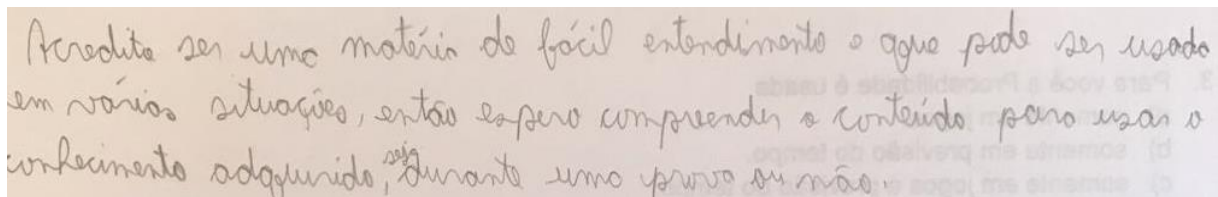 Acredito ser uma matéria de fácil entendimento e qque pode ser usado
em varias situações, então espero compreender o conteúdo para usar o
conhecimento adqquirido, seja durante uma prova ou não.